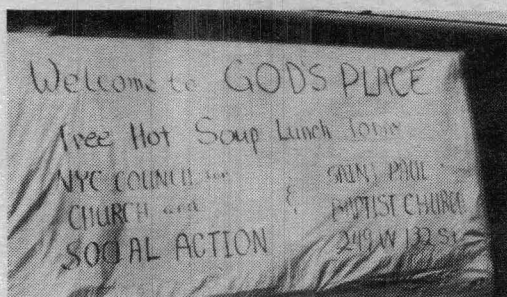 Welcome to GOD'S PLACE
Free Hot Soup Lunch
NYC COUNCIL for
CHURCH and
SOCIAL ACTION
&
SAINT PAUL
BAPTIST CHURCH
249 W 132 St